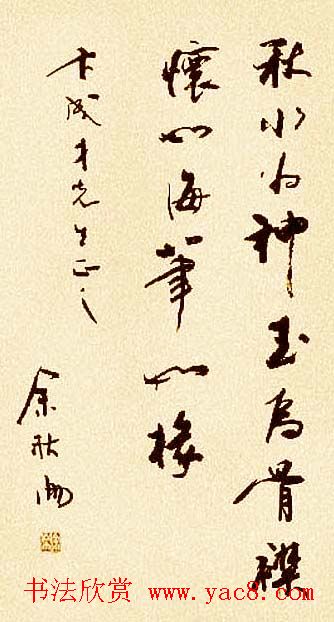 秋水为神玉為骨襟
懷如海筆如椽
成才先生正之
余秋雨
书法欣赏 www.yac8.com